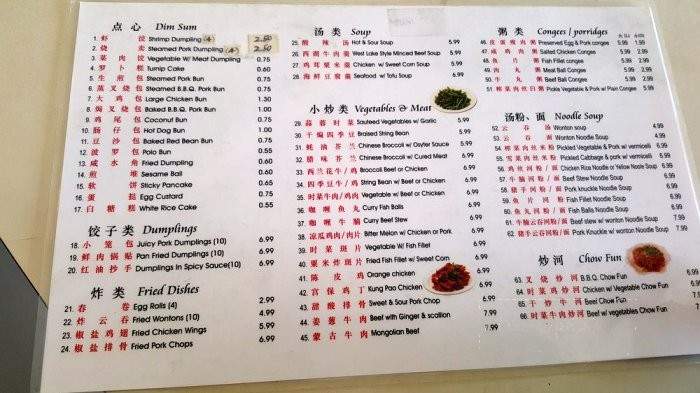 点 心 Dim Sum
1. 虾 饺 Shrimp Dumpling (4) 2.50
2. 烧 卖 Steamed Pork Dumpling (4) 2.50
3. 菜 肉 饺 Vegetable W/ Meat Dumpling 0.75
4. 萝 卜 糕 Turnip Cake 0.60
5. 生 煎 包 Steam Pork Bun 0.75
6. 蒸 叉 烧 包 Steamed B.B.Q. Pork Bun 0.75
7. 大 鸡 包 Large Chicken Bun 1.30
8. 焗 叉 烧 包 Baked B.B.Q. Pork Bun 1.00
9. 鸡 尾 包 Coconut Bun 0.75
10. 肠 仔 包 Hot Dog Bun 1.00
11. 豆 沙 包 Baked Red Bean Bun 0.75
12. 波 萝 包 Polo Bun 0.75
13. 咸 水 角 Fried Dumpling 0.60
14. 煎 堆 Sesame Ball 0.60
15. 软 饼 Sticky Pancake 0.65
16. 蛋 挞 Egg Custard 0.75
17. 白 糖 糕 White Rice Cake 0.55
饺 子 类 Dumplings
18. 小 笼 包 Juicy Pork Dumplings (10) 6.99
19. 鲜 肉 锅 贴 Pan Fried Dumplings (10) 6.99
20. 红 油 抄 手 Dumplings In Spicy Sauce(10) 6.99
炸 类 Fried Dishes
21. 春 卷 Egg Rolls (4) 2.99
22. 炸 云 吞 Fried Wontons (10) 4.99
23. 椒 盐 鸡 翅 Fried Chicken Wings 5.99
24. 椒 盐 排 骨 Fried Pork Chops 6.99
汤 类 Soup
25. 酸 辣 汤 Hot & Sour Soup 5.99
26. 西 湖 牛 肉 羹 West Lake Style Minced Beef Soup 5.99
27. 鸡 茸 粟 米 羹 Chicken w/ Sweet Corn Soup 5.99
28. 海 鲜 豆 腐 羹 Seafood w/ Tofu Soup 5.99
小 炒 类 Vegetables & Meat
29. 蒜 蓉 时 菜 Sauteed Vegetables w/ Garlic
30. 干 煸 四 季 豆 Braised String Bean 5.99
31. 蚝 油 芥 兰 Chinese Broccoli w/ Oyster Sauce 5.99
32. 腊 味 芥 兰 Chinese Broccoli w/ Cured Meat 6.99
33. 西兰花牛/鸡 Broccoli Beef or Chicken 6.99
34. 四季豆牛/鸡 String Bean w/ Beef or Chicken 6.99
35. 时菜牛肉/鸡 Vegetable w/ Beef or Chicken 6.99
36. 咖 喱 鱼 丸 Curry Fish Balls 6.99
37. 咖 喱 牛 腩 Curry Beef Stew 6.99
38. 凉瓜鸡肉/肉片 Bitter Melon w/ Chicken or Pork 6.99
39. 时 菜 斑 片 Vegetable W/ Fish Fillet 6.99
40. 粟 米 炸 斑 片 Fried Fish Fillet w/ Sweet Corn 6.99
41. 陈 皮 鸡 Orange chicken 6.99
42. 宫 保 鸡 丁 Kung Pao Chicken 6.99
43. 甜 酸 排 骨 Sweet & Sour Pork Chop 6.99
44. 姜 葱 牛 肉 Beef with Ginger & scallion 7.99
45. 蒙 古 牛 肉 Mongolian Beef 7.99
粥 类 Conges / porridges
46. 皮 蛋 瘦 肉 粥 Preserved Egg & Pork congee 1.99 2.99
47. 咸 鸡 粥 Salted Chicken Congee 1.99 2.99
48. 鱼 片 粥 Fish Fillet congee 1.99 2.99
49. 肉 丸 粥 Meat Ball Congee 1.99 2.99
50. 牛 丸 粥 Beef Ball Congee 1.99 2.99
51. 榨菜肉丝白粥 Pickle Vegetable & Pork w/ Plain Congee 1.99 2.99
汤粉、面 Noodle Soup
52. 云 吞 汤 Wonton soup 4.99
53. 云 吞 面 Wonton Noodle Soup 5.99
54. 榨菜肉丝米粉 Pickled Vegetable & Pork w/ vermicelli 5.99
55. 雪菜肉丝米粉 Pickled Cabbage & pork w/ vermicelli 5.99
56. 鸡丝河粉/面 Chicken Rice Noodle or Yellow Noole Soup 5.99
57. 牛腩河粉/面 Beef Stew Noodle Soup 5.99
58. 猪手河粉/面 Pork knuckle Noodle Soup 5.99
59. 鱼 片 河 粉 Fish Fillet Noodle Soup 5.99
60. 鱼丸河粉/面 Fish Balls Noodle Soup 5.99
61. 牛腩云吞河粉/面 Beef stew w/ wonton Noodle Soup 5.99
62. 猪手云吞河粉/面 Pork Knuckle w/ wonton Noodle Soup 5.99
炒河 Chow Fun
63. 叉 烧 炒 河 B.B.Q. Chow Fun 6.99
64. 时菜鸡炒河 Chicken w/ Vegetable Chow Fun 6.99
65. 干 炒 牛 河 Beef Chow Fun 6.99
66. 时菜牛肉炒河 Beef w/ vegetables Chow Fun 7.99